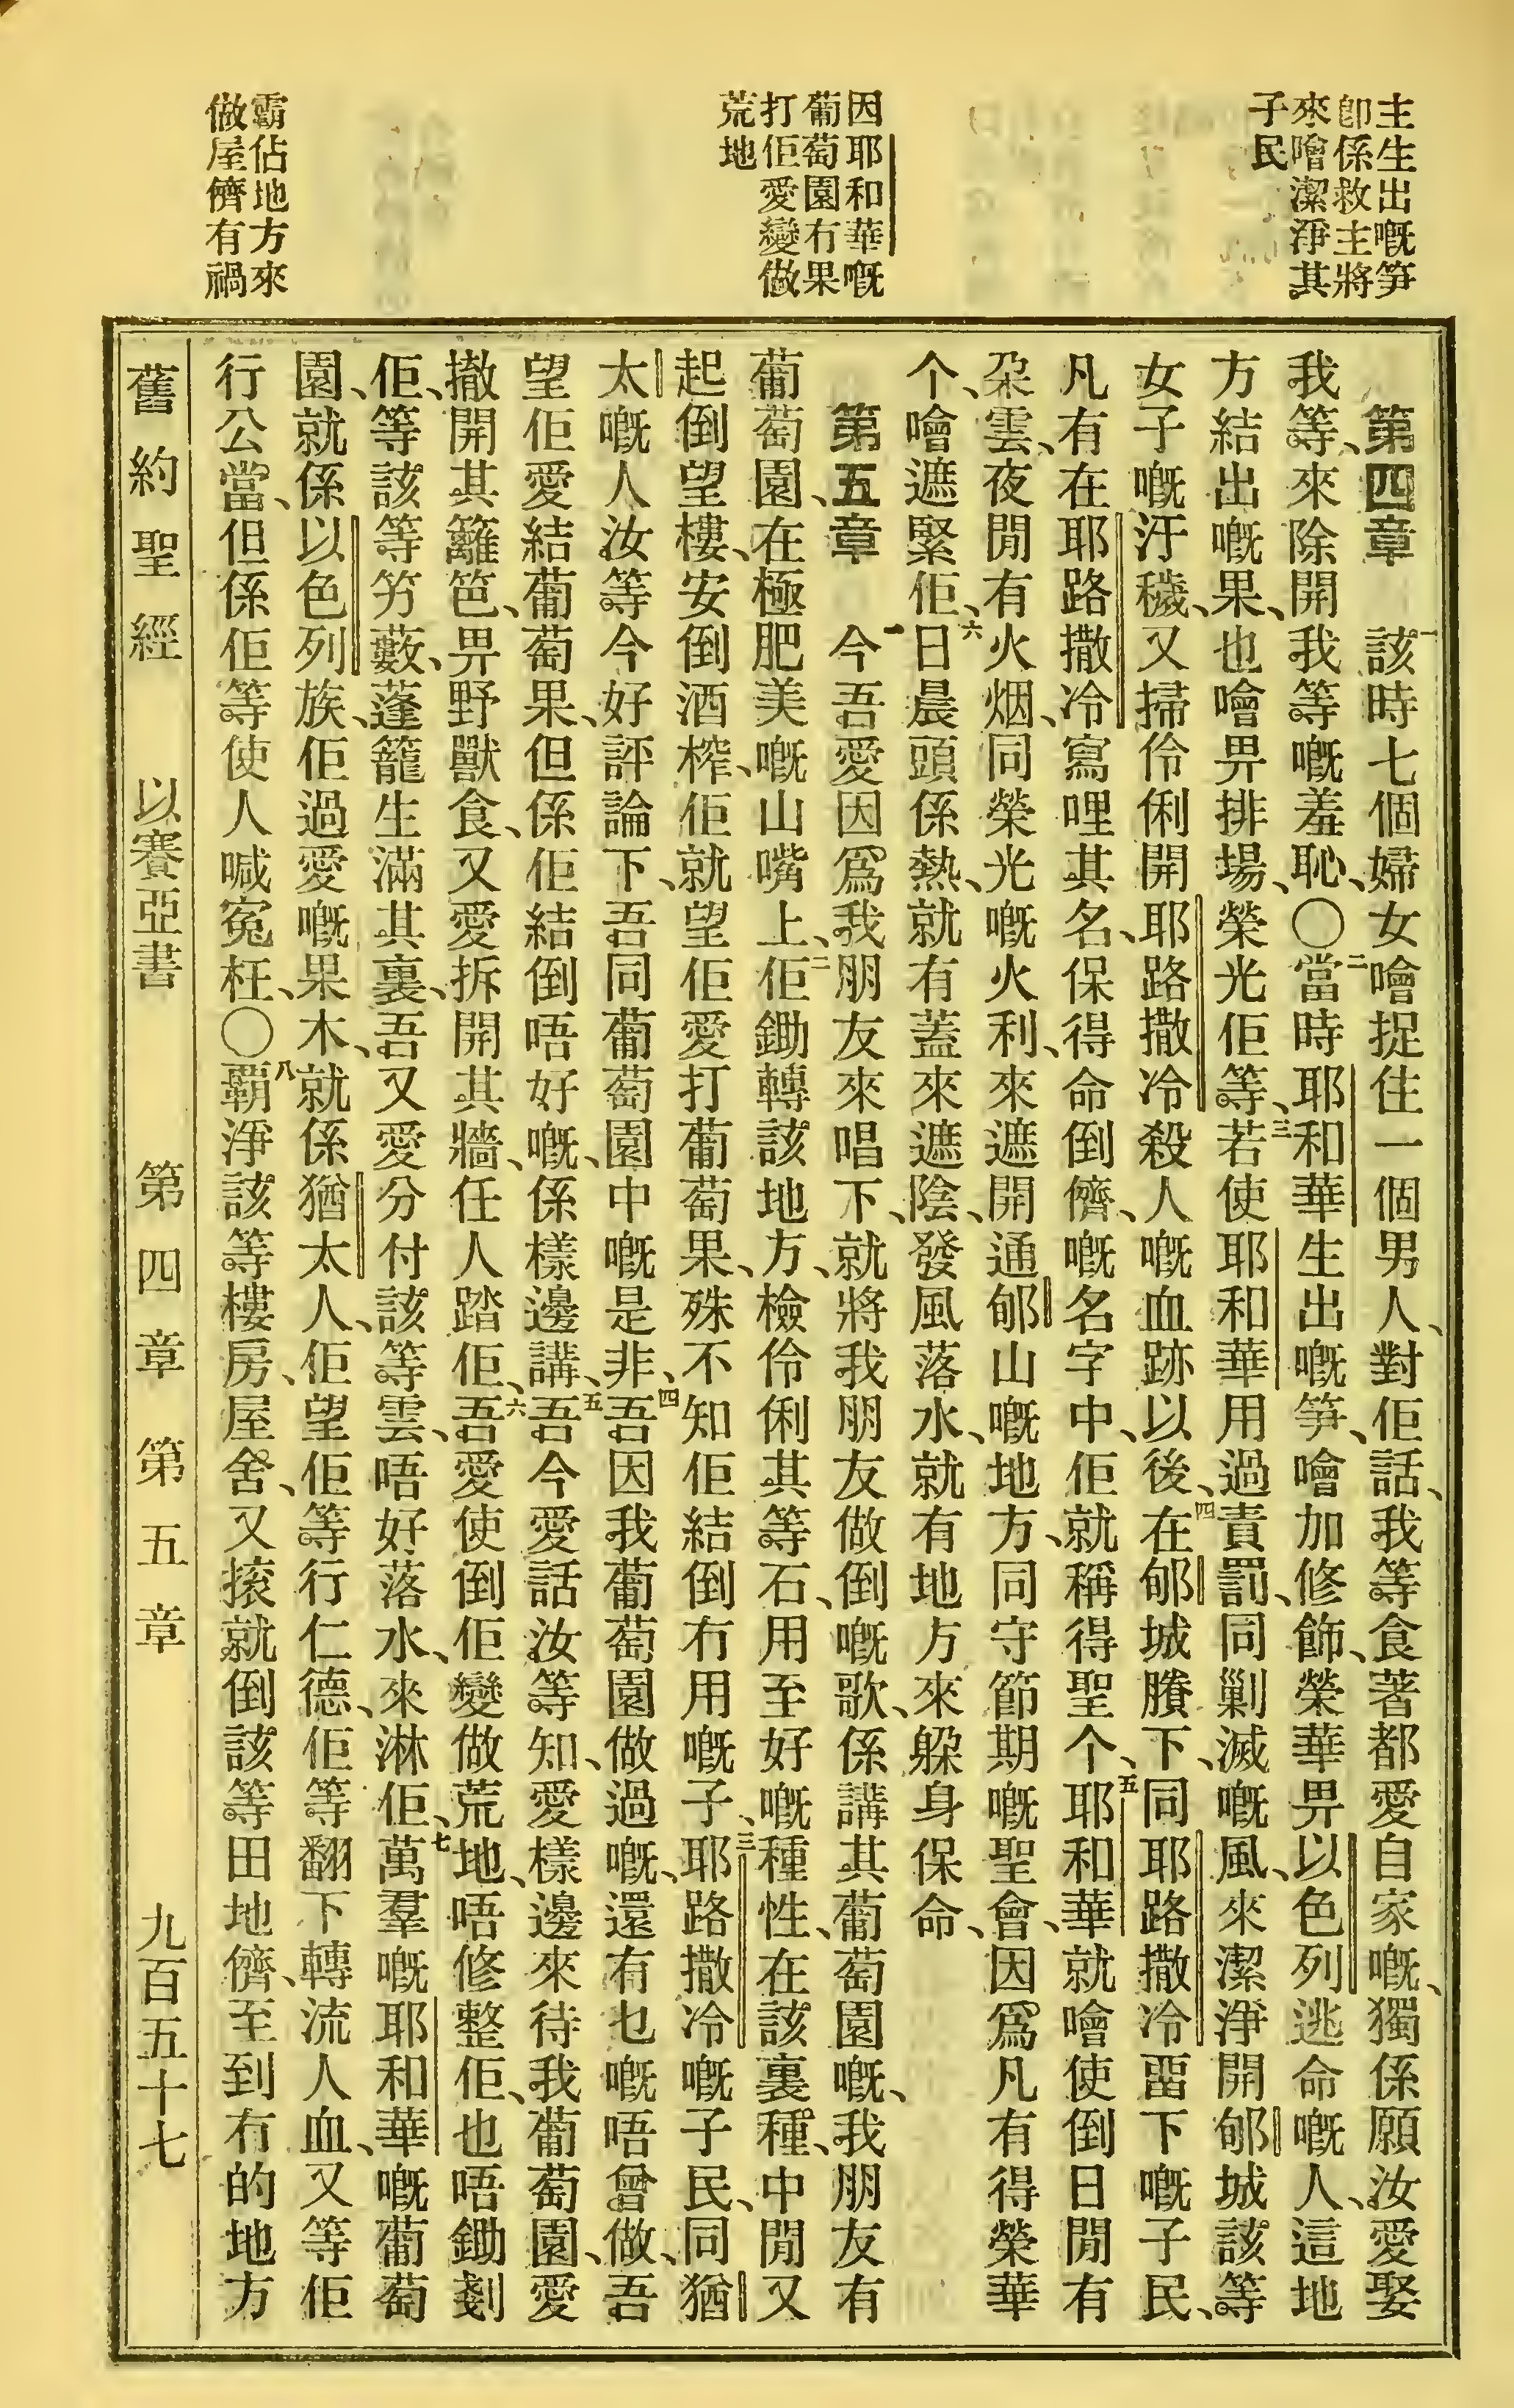 主生出嘅笋
卽係救主將
來噲潔淨其
子民
因耶和華嘅
葡萄園冇果
打佢愛變做
荒地
霸佔地方來
做屋儕有禍
第四章 一該時七個婦女噲捉住一個男人、對佢話、我等食著都愛自家嘅、獨係願汝愛娶
我等、來除開我等嘅羞恥、〇二當時耶和華生出嘅笋、噲加修飾、榮華畀以色列逃命嘅人、這地
方結出嘅果、也噲畀排場、榮光佢等、三若使耶和華用過責罰、同剿滅嘅風、來潔淨開郇城該等
女子嘅汙穢、又掃伶俐開耶路撒冷殺人嘅血跡以後、四在郇城賸下、同耶路撒冷畱下嘅子民、
凡有在耶路撒冷寫哩其名、保得命倒儕、嘅名字中、佢就稱得聖个、五耶和華就噲使倒日閒有
朶雲、夜閒有火烟、同榮光嘅火利、來遮開通郇山嘅地方、同守節期嘅聖會、因爲凡有得榮華
个、噲遮緊佢、六日晨頭係熱、就有蓋來遮陰、發風落水、就有地方來躱身保命、
第五章 一今吾愛因爲我朋友來唱下、就將我朋友做倒嘅歌、係講其葡萄園嘅、我朋友有
葡萄園、在極肥美嘅山嘴上、二佢鋤轉該地方、檢伶俐其等石、用至好嘅種性、在該裏種、中閒又
起倒望樓、安倒酒榨、佢就望佢愛打葡萄果、殊不知佢結倒冇用嘅子、三耶路撒冷嘅子民、同猶
太嘅人汝等今好評論下、吾同葡萄園中嘅是非、四吾因我葡萄園做過嘅、還有乜嘅唔曾做、吾
望佢愛結葡萄果、但係佢結倒唔好嘅、係樣邊講、五吾今愛話汝等知、愛樣邊來待我葡萄園、愛
撤開其籬笆、畀野獸食、又愛拆開其牆、任人踏佢、六吾愛使倒佢變做荒地、唔修整佢、也唔鋤剗
佢、等該等竻藪、蓬籠生滿其裏、吾又愛分付該等雲、唔好落水、來淋佢、七萬羣嘅耶和華嘅葡萄
園、就係以色列族、佢過愛嘅果木、就係猶太人、佢望佢等行仁德、佢等翻下轉流人血、又等佢
行公當、但係佢等使人喊寃枉、〇八覇淨該等樓房、屋舍、又㨍就倒該等田地儕、至到冇的地方
舊約聖經 以賽亞書 第四章 第五章 九百五十七